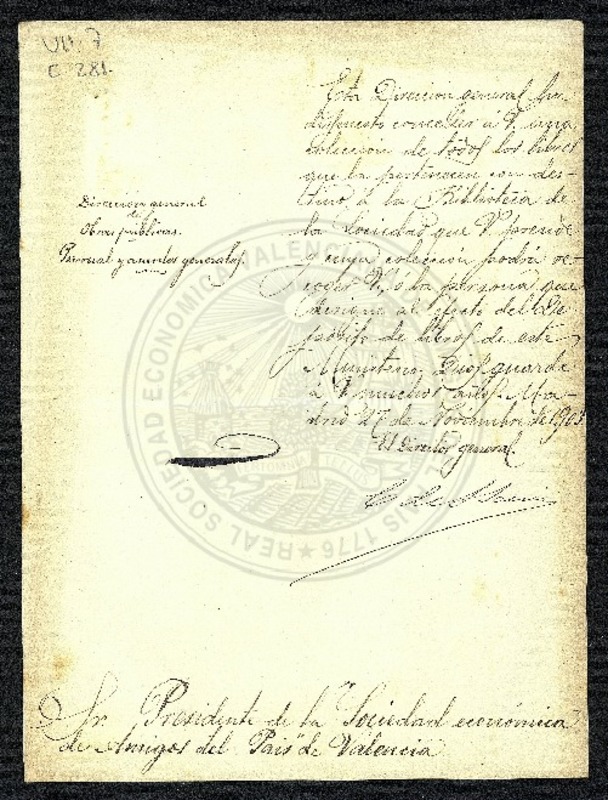 VII. 7
C 281.
Esta Direccion general ha
dispuesto conceder á V. una
coleccion de todos los libros
que la pertenecen con des-
tino á la Biblioteca de
la Sociedad que V. preside
y cuya coleccion podrá re-
coger V., ó la persona que
designe al efecto del De-
pósito de libros de este
Ministerio. Dios guarde
á V. muchos años. Ma-
drid 27 de Noviembre de 1903.
El Director general.
Direccion general
de
Obras públicas.
Personal y asuntos generales.
Sr. Presidente de la "Sociedad económica
de Amigos del Pais" de Valencia
REAL SOCIEDAD ECONOMICA VALENCIANA
1776